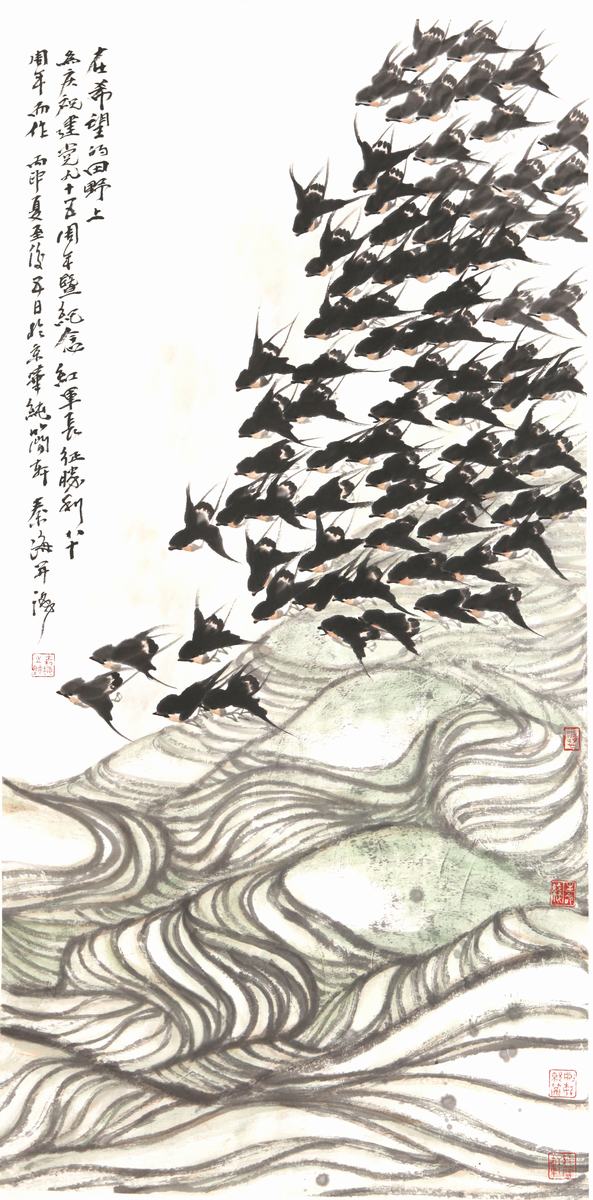 在希望的田野上
为庆祝建党九十五周年暨纪念红军长征胜利八十
周年而作 丙申夏至后五日於京华纯简轩 秦海